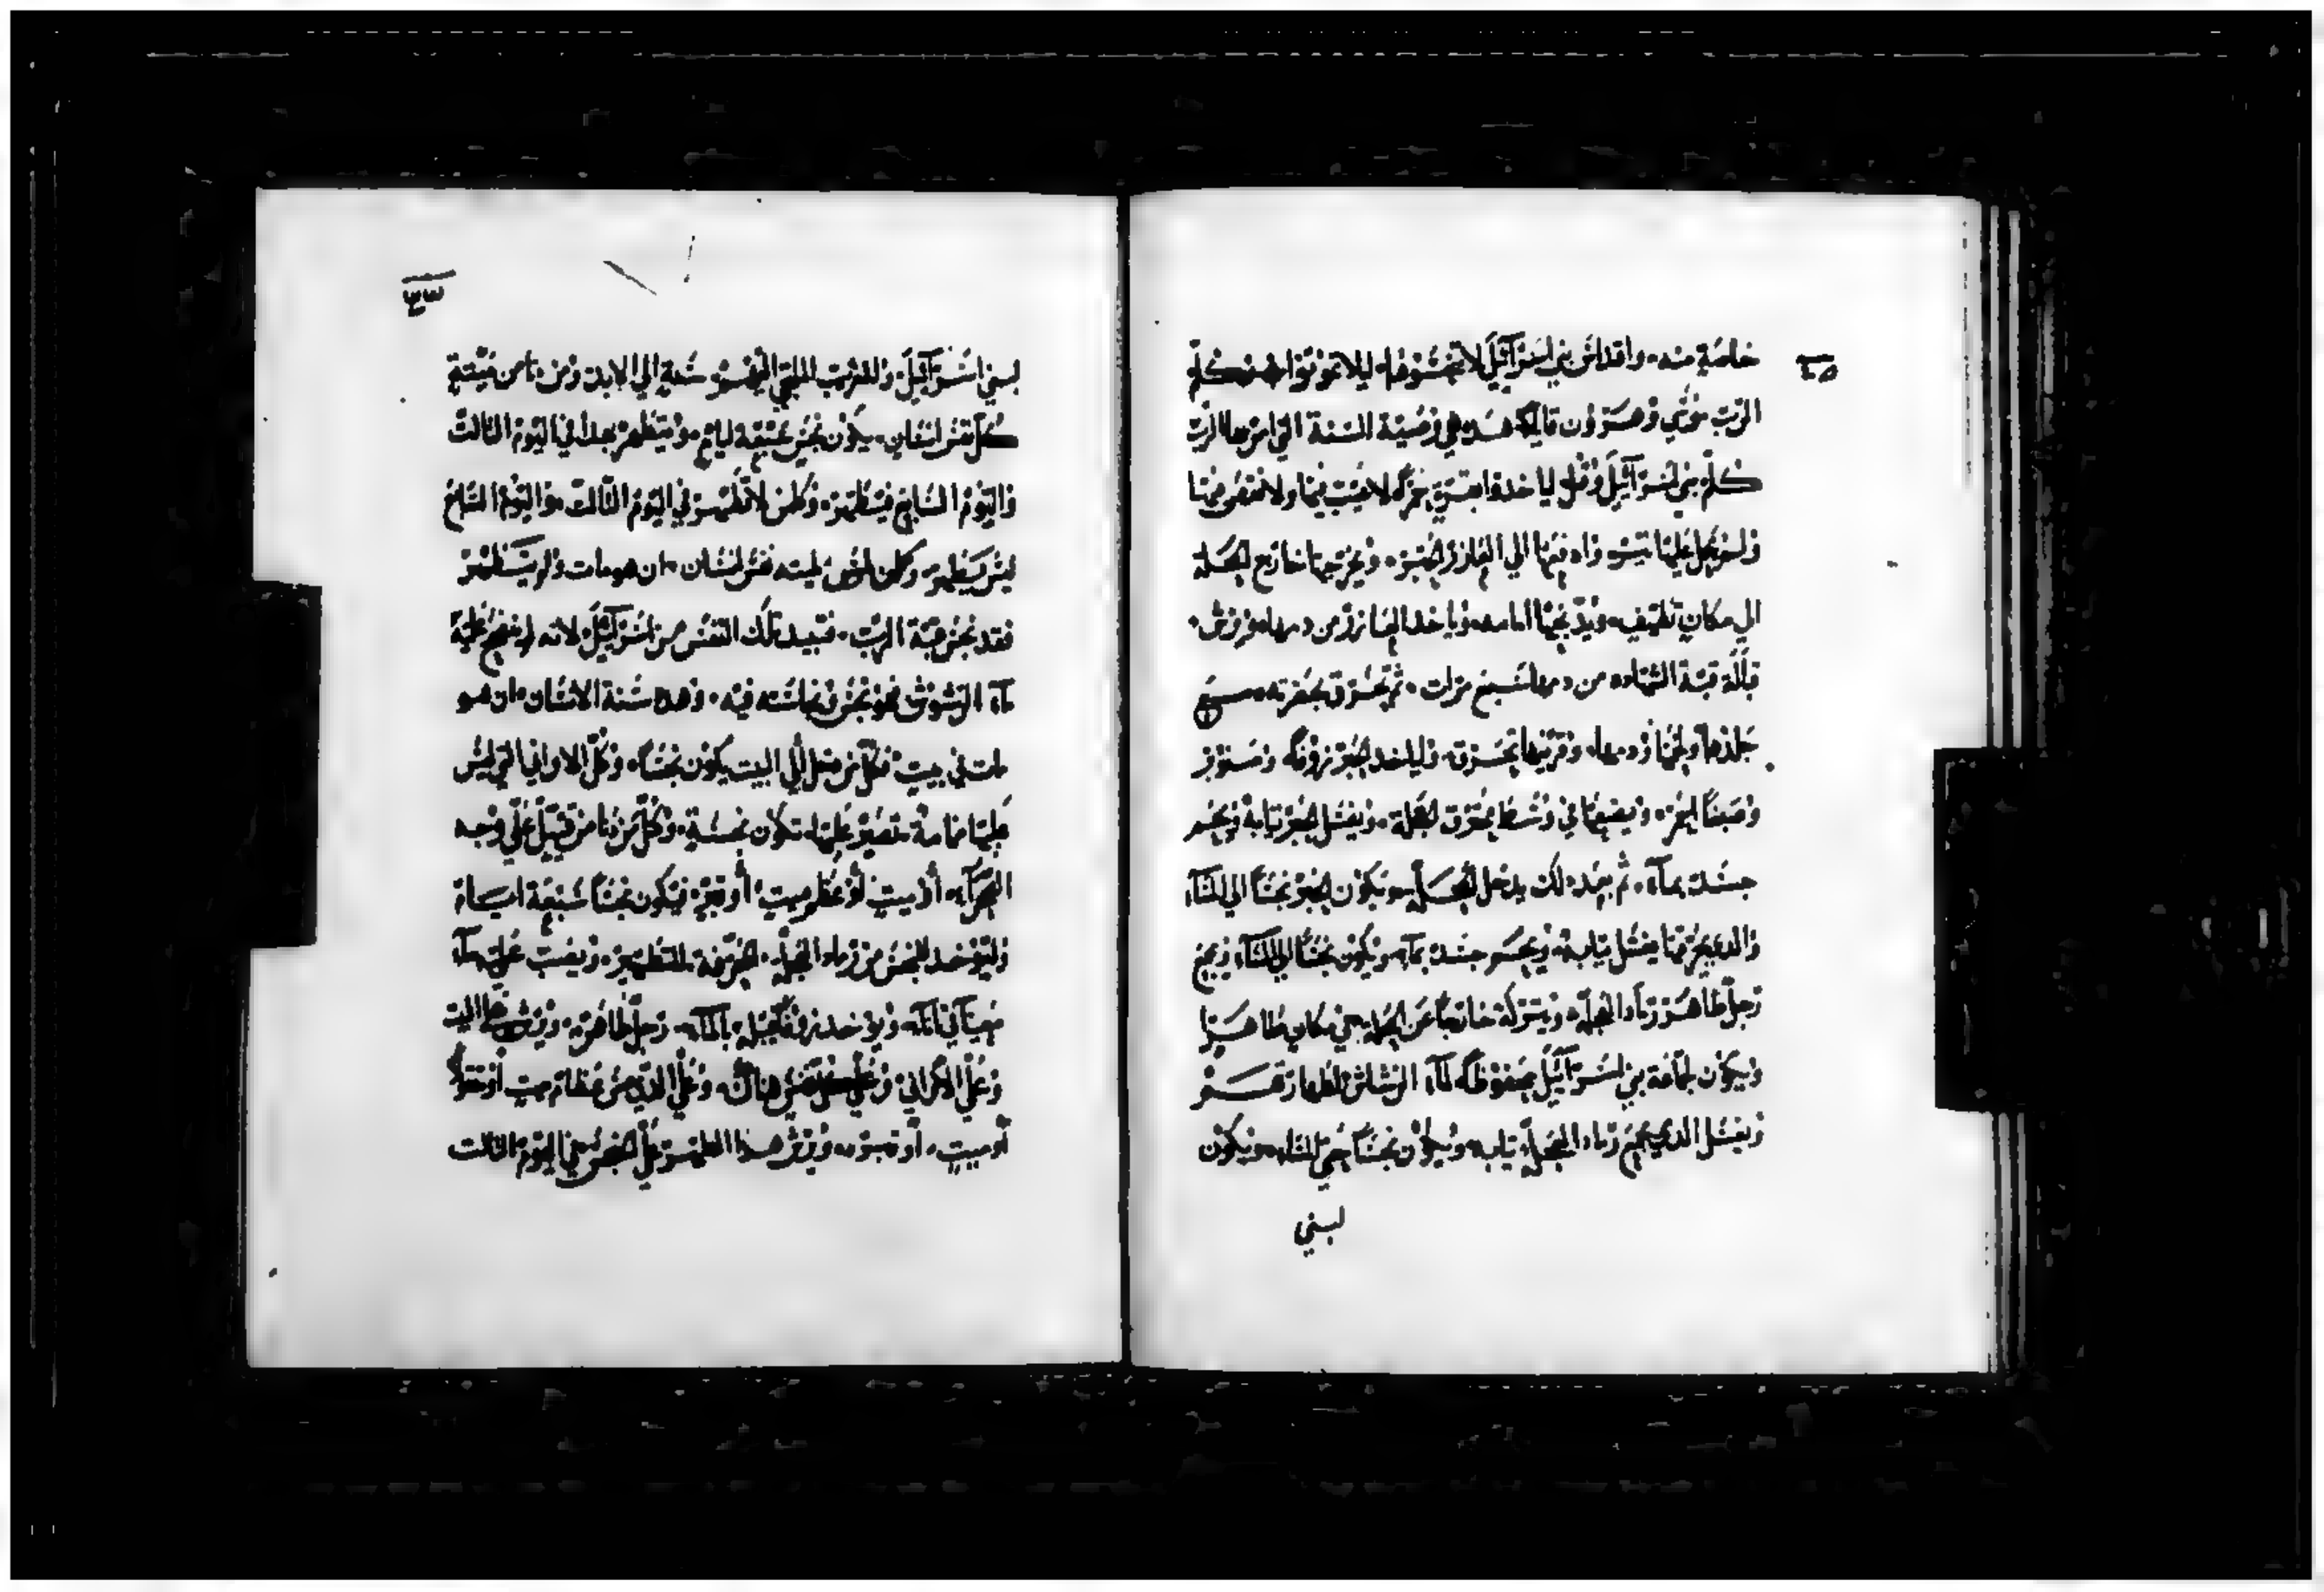 خاصة منه. واقداس بني اسرآئيل لا تنجسوها. ليلا تموتوا. وكلم
الرب موسي وهرون قايلا هده هي وصية السنة التي امر بها الرب
كلم بني اسرآئيل وقل لياخدوا بقرة لا عيب فيها ولا نقص فيها
ولم يحمل عليها نير وادفعها الي العازر الحبر. ويخرجها خارج العسكر
الي مكان نظيف. ويدبحها امامه. وياخد العازر من دمها. ويرش.
قبالة قبة الشهاده من دمها سبع مرات. ثم تحرق بحضرته. مع
جلدها ولحمها ودمها. وفرثها تحرق. ولياخد الحبر زوفا وصنوبر
وصبغا احمر. ويضعها في وسط محرق العجلة. ويغسل الحبر تيابه ويحم
جسده بمآء. ثم بعد دلك يدخل العسكر. ويكون الحبر نجسا الي المسآء
والدي يحرقها يغسل تيابه. ويحم جسده بمآء. ويكون نجسا الي المسآء. ويجمع
رجل طاهر رماد العجلة. ويتركه خارجا عن العسكر في مكان طاهر
ويكون لجماعة بني اسرآئيل محفوظا لمآء الرشاش
ويغسل الدي يجمع رماد العجلة تيابه. ويكون نجسا حتي المساء. ويكون
لبني
لبني اسرآئيل. وللغريب الملتجي اليهم سنة الي الابد. ومن مس ميتة
كل نفس انسان. يكون نجس سبعة ايام. ويتطهر بهدا في اليوم التالت
واليوم السابع فيتطهر. وكلمن لا تطهر في اليوم التالت. واليوم السابع
ليس يتطهر. وكلمن لمس ميته نفس انسان. ان هو مات ولم يتطهر
فقد نجس قبة الرب. فتبيد تلك النفس من اسرآئيل. لانه لم ينضح عليه
مآء الرشوش فهو نجس ونجاسته فيه. وهده سنة الانسان. ان هو
مات في بيت. فكل من دخل الي البيت يكون نجسا. وكل الاواني التي ليس
عليها عليها. تكون نجسة. وكل من دنا من قتيل علي وجه
الصحرآء. أو ميت. أو عظم ميت. أو قبر. فيكون نجسا سبعة ايام
وليوخد للنجس من رماد العجلة. المحرقة للتطهير. ويصب عليه مآء
في انآء. ويوخد زوفا بالمآء. رجل طاهر. ويرش علي البيت
وعلي الاواني. وعلي نفس هناك. وعلي الدي مس عظام ميت أو مقتولا
أو ميت. أو قبر. ويرش هدا الطاهر علي النجس في اليوم التالت